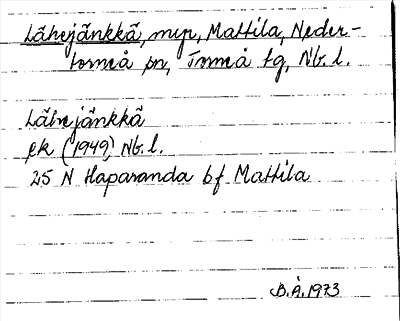 Lähejänkkä, myr, Mattila, Neder-
torneå sn, Torneå tg, Nb. l.
Lähejänkkä
ek (1949) Nb. l.
25 N Haparanda bf Mattila
B.Å. 1973